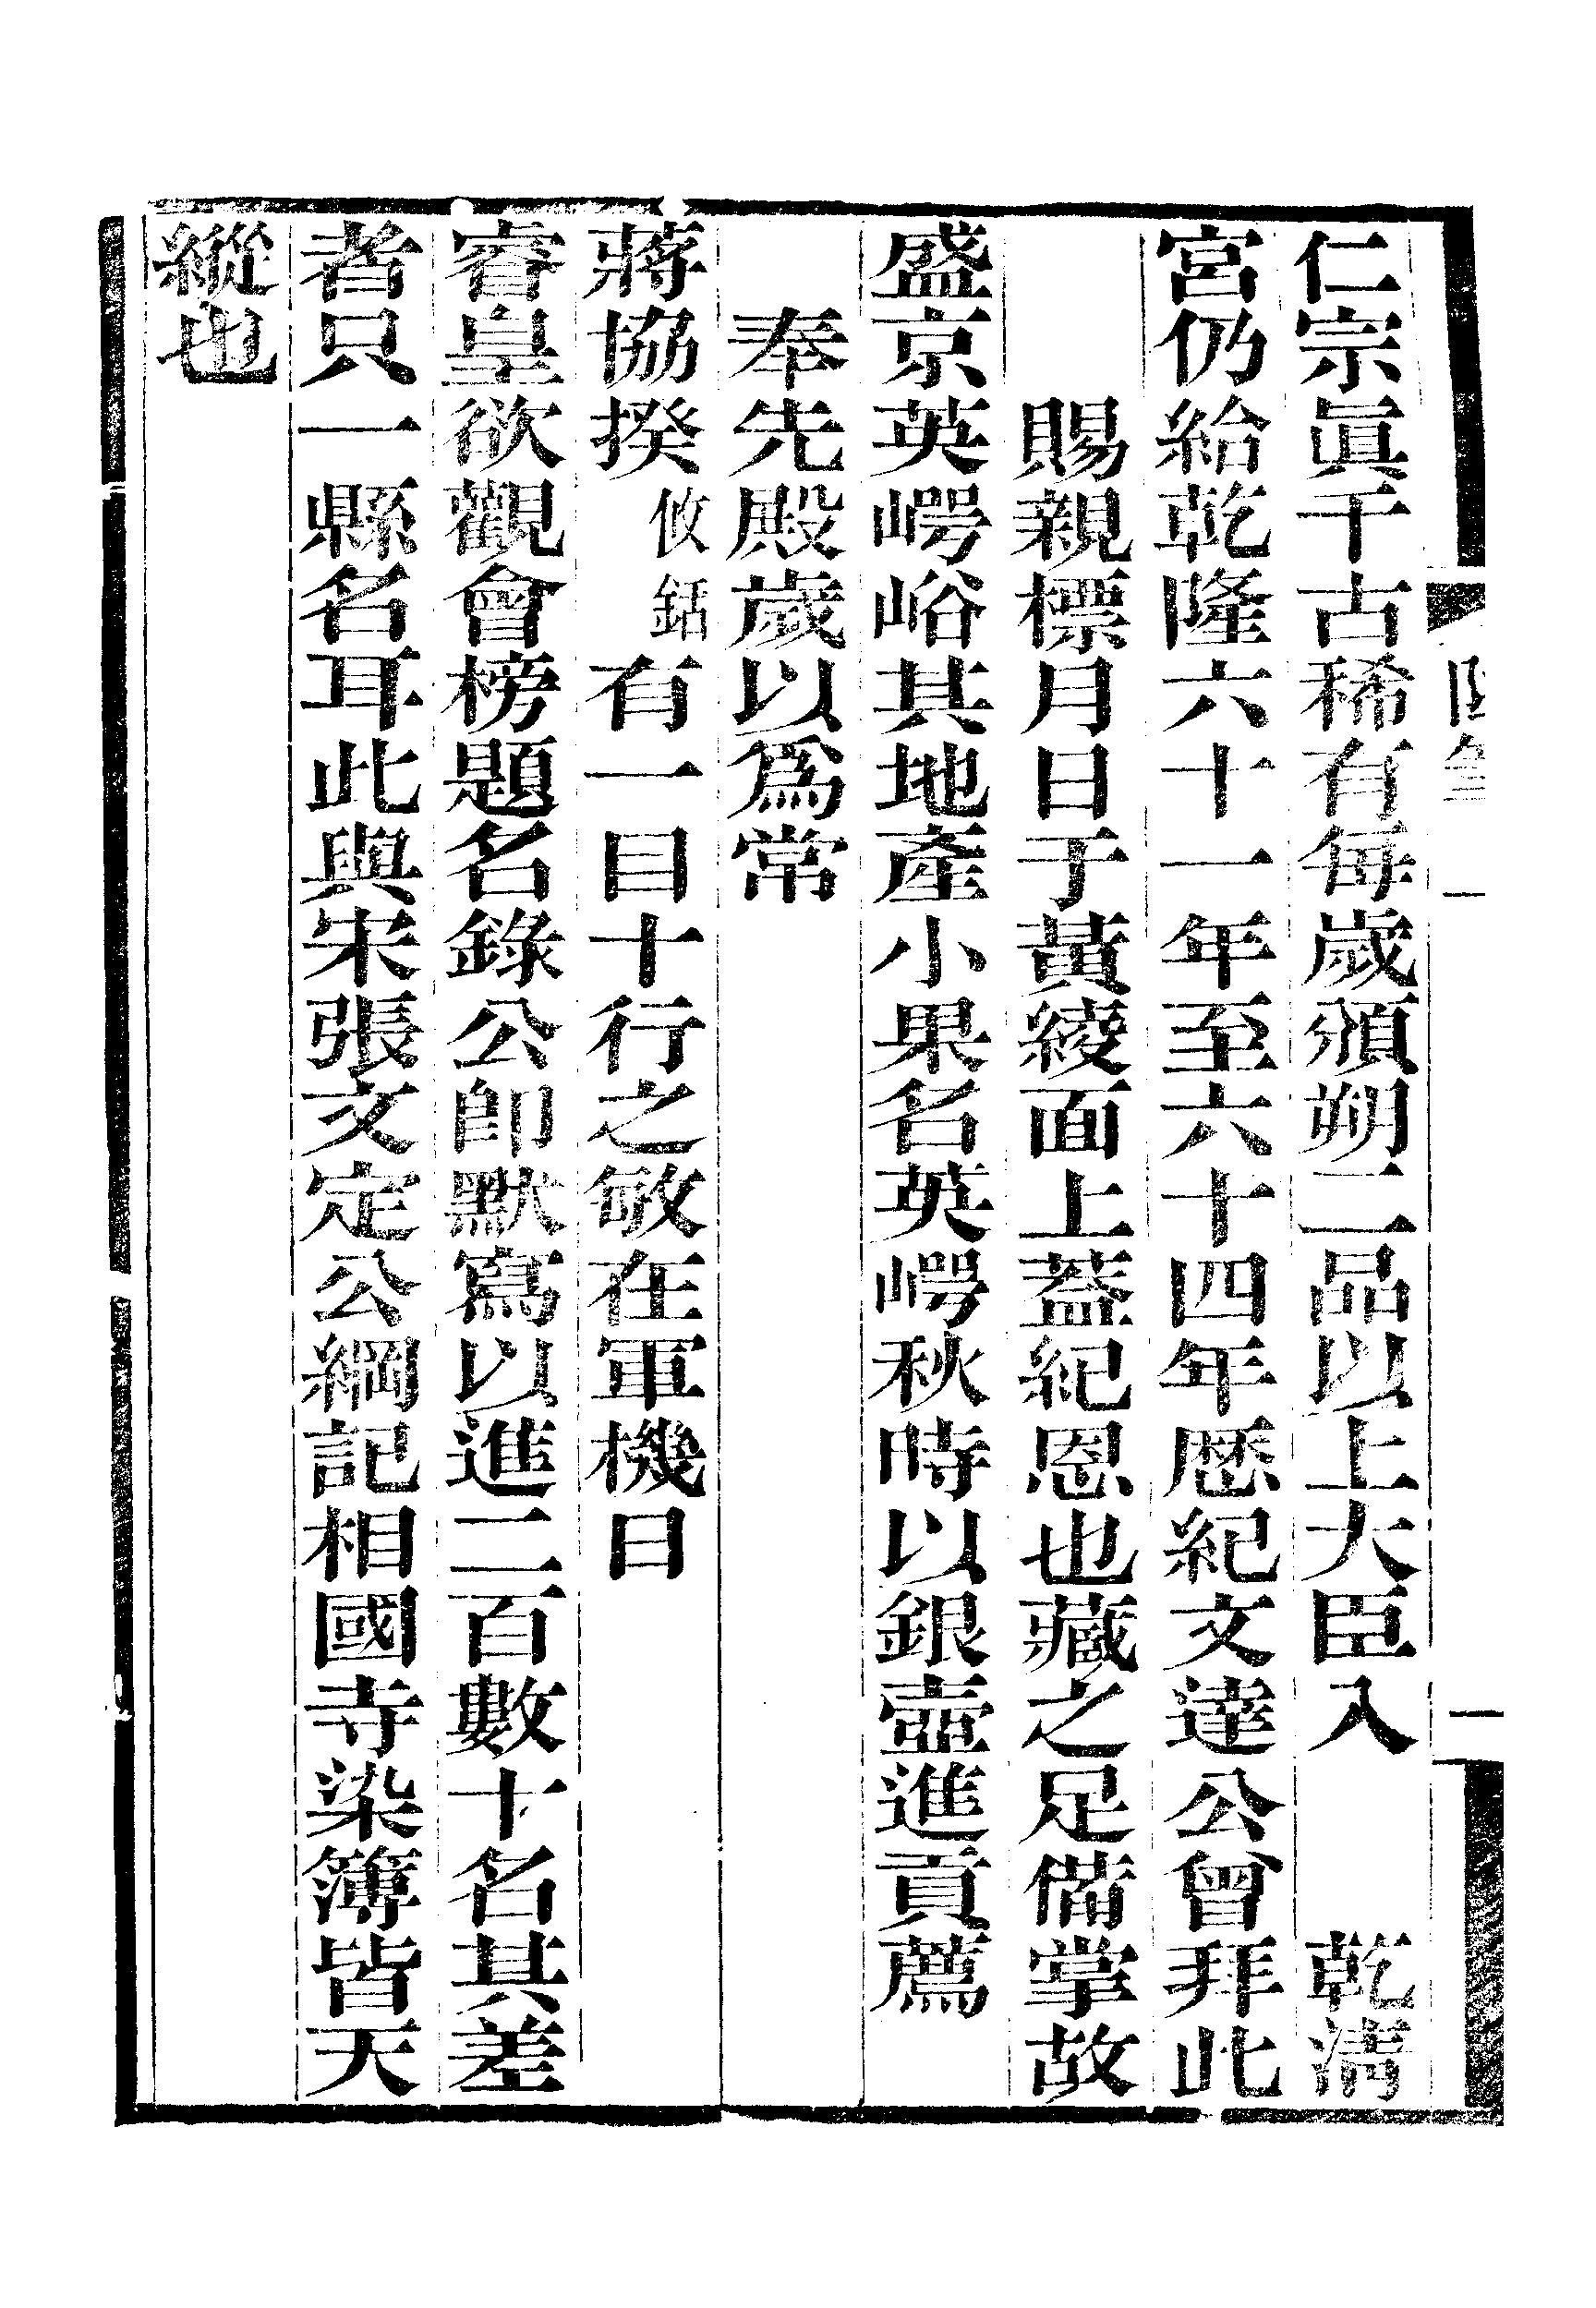 仁宗眞千古稀有每歲頒朔二品以上大臣入　　乾淸
宮仍給乾隆六十一年至六十四年厯紀文達公曾拜此
賜親標月日于黃綾面上蓋紀恩也藏之足備掌故
盛京英崿峪其地產小果名英崿秋時以銀壺進貢薦
奉先殿歲以爲常
蔣協揆攸銛有一目十行之敏在軍機日
睿皇欲觀會榜題名錄公卽默寫以進二百數十名其差
者只一縣名耳此與宋張文定公綱記相國寺染簿皆天
縱也